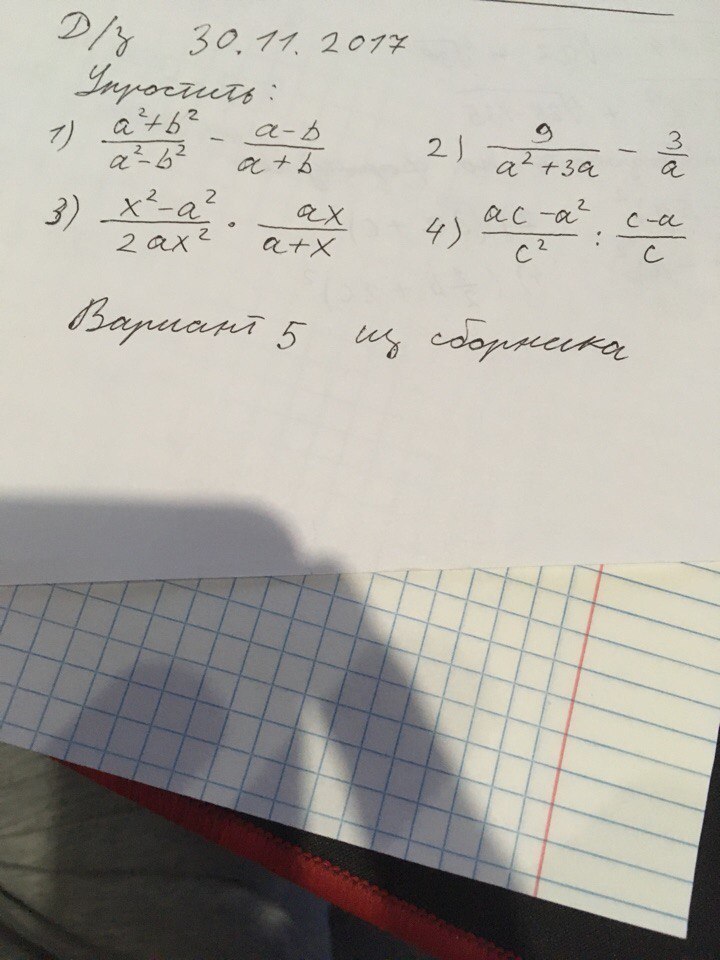 Д/з 30.11.2017
Упростить:
1) (a²+b²)/(a²-b²) - (a-b)/(a+b) 2) 9/(a²+3a) - 3/a
3) (x²-a²)/(2ax²) · ax/(a+x) 4) (ac-a²)/c² : (c-a)/c
Вариант 5 из сборника